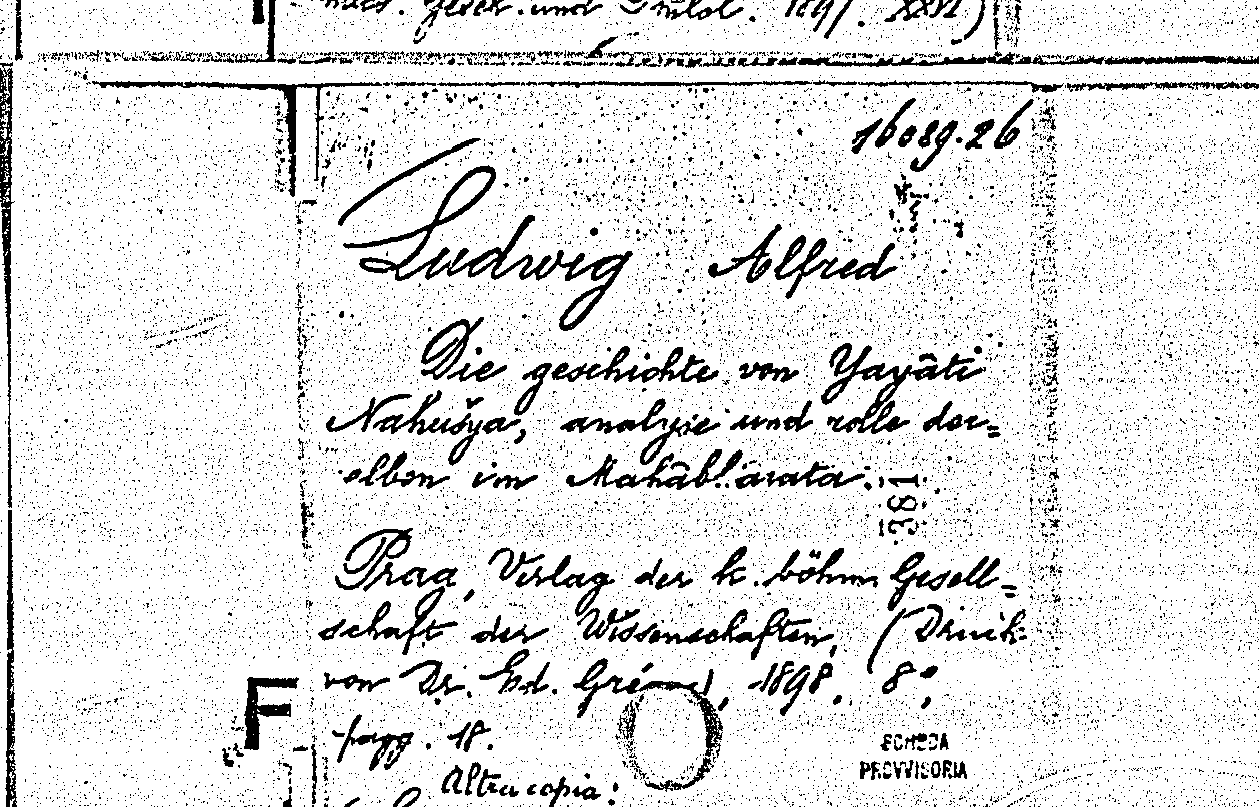 16089.26
Ludwig Alfred
Die geschichte von Yayâti
Nahušya, analyse und rolle der=
selben im Mahâbhârata.
381
Prag, Verlag der k. böhm. Gesell=
schaft der Wissenschaften, (Druck
von Dr. Ed. Grégr), 1898. 8°,
F
pagg. 18.
SCHEDA
PROVVISORIA
Altra copia: